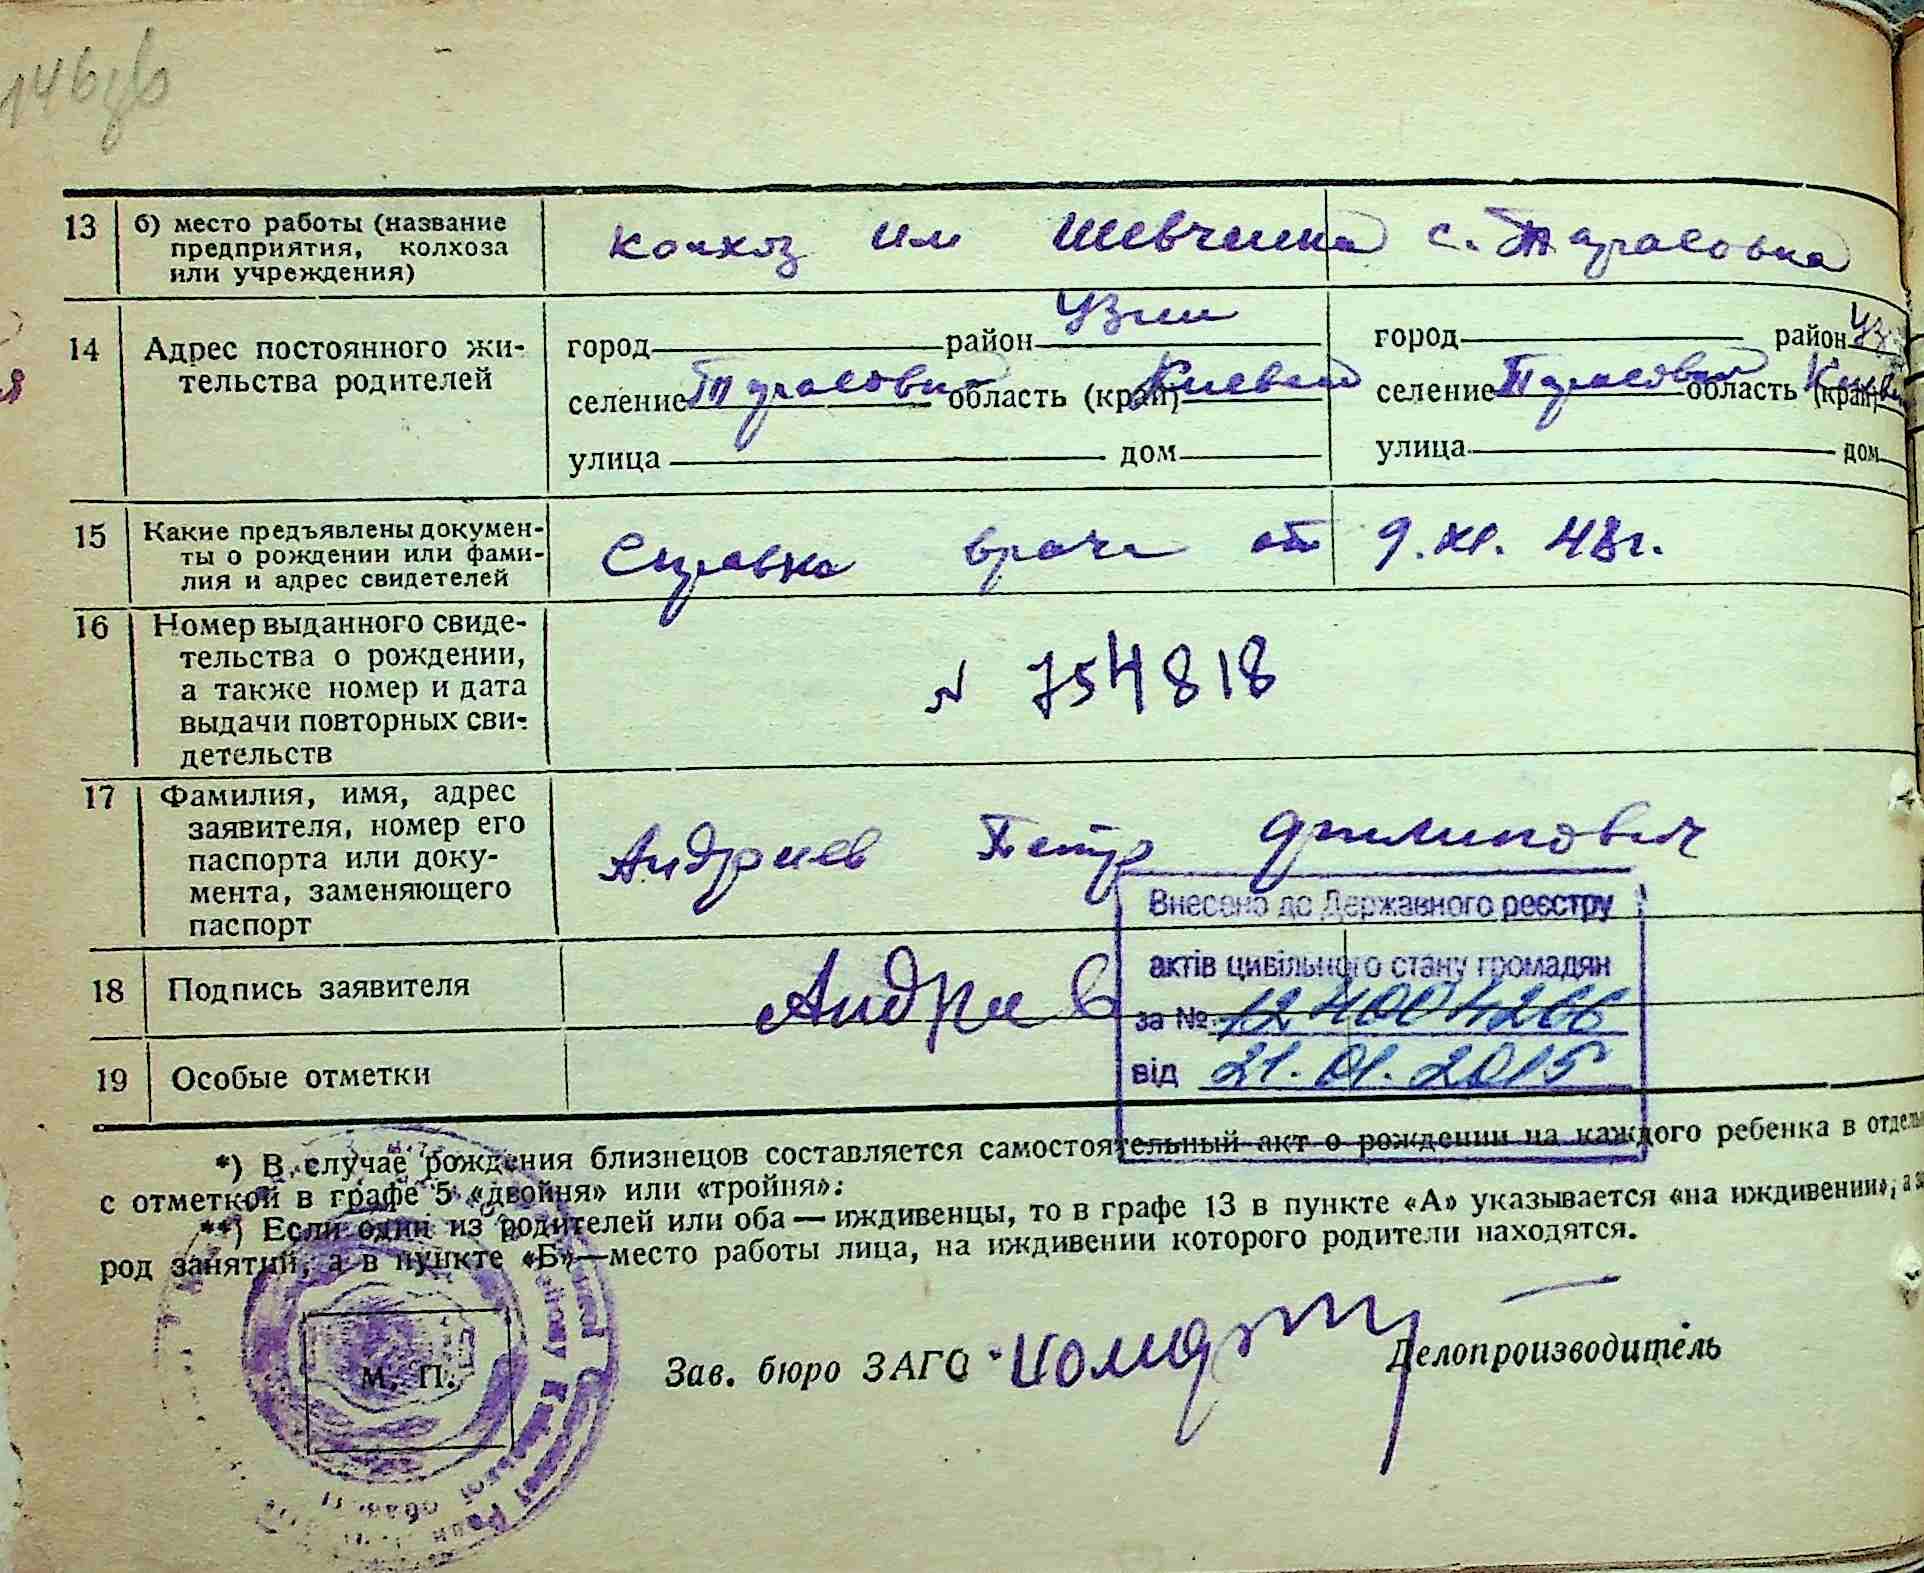 146зв
13 б) место работы (название
предприятия, колхоза
или учреждения)
колхоз им Шевченка с. Тарасовка
14 Адрес постоянного жи-
тельства родителей
город район Узин
селение Тарасовка область (край) Киевск
улица дом
город район Уз
селение Тарасовка область (край) Киев
улица дом
15 Какие предъявлены докумен-
ты о рождении или фами-
лия и адрес свидетелей
Справка врача от 9.XI. 48г.
16 Номер выданного свиде-
тельства о рождении,
а также номер и дата
выдачи повторных сви-
детельств
N 754818
17 Фамилия, имя, адрес
заявителя, номер его
паспорта или доку-
мента, заменяющего
паспорт
Андриев Петр Филипович
Внесено до Державного реєстру
актів цивільного стану громадян
за №
від 21.01.2015
18 Подпись заявителя
Андриев
19 Особые отметки
*) В случае рождения близнецов составляется самостоятельный акт о рождении на каждого ребенка в отдель
с отметкой в графе 5 «двойня» или «тройня».
**) Если один из родителей или оба — иждивенцы, то в графе 13 в пункте «А» указывается «на иждивении», а
род занятий, а в пункте «Б»—место работы лица, на иждивении которого родители находятся.
М. П.
Зав. бюро ЗАГС
Делопроизводитель